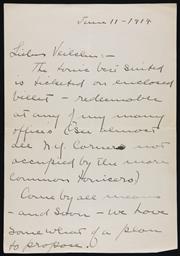 June 11-1919
The tome best suited
is ticketed on enclosed
billet - redeemable
at any of my many
offices (
all N.Y. Corners not
occupied by the more
common
Come by all means
- and soon - we have
somewhat of a plan
to propose.